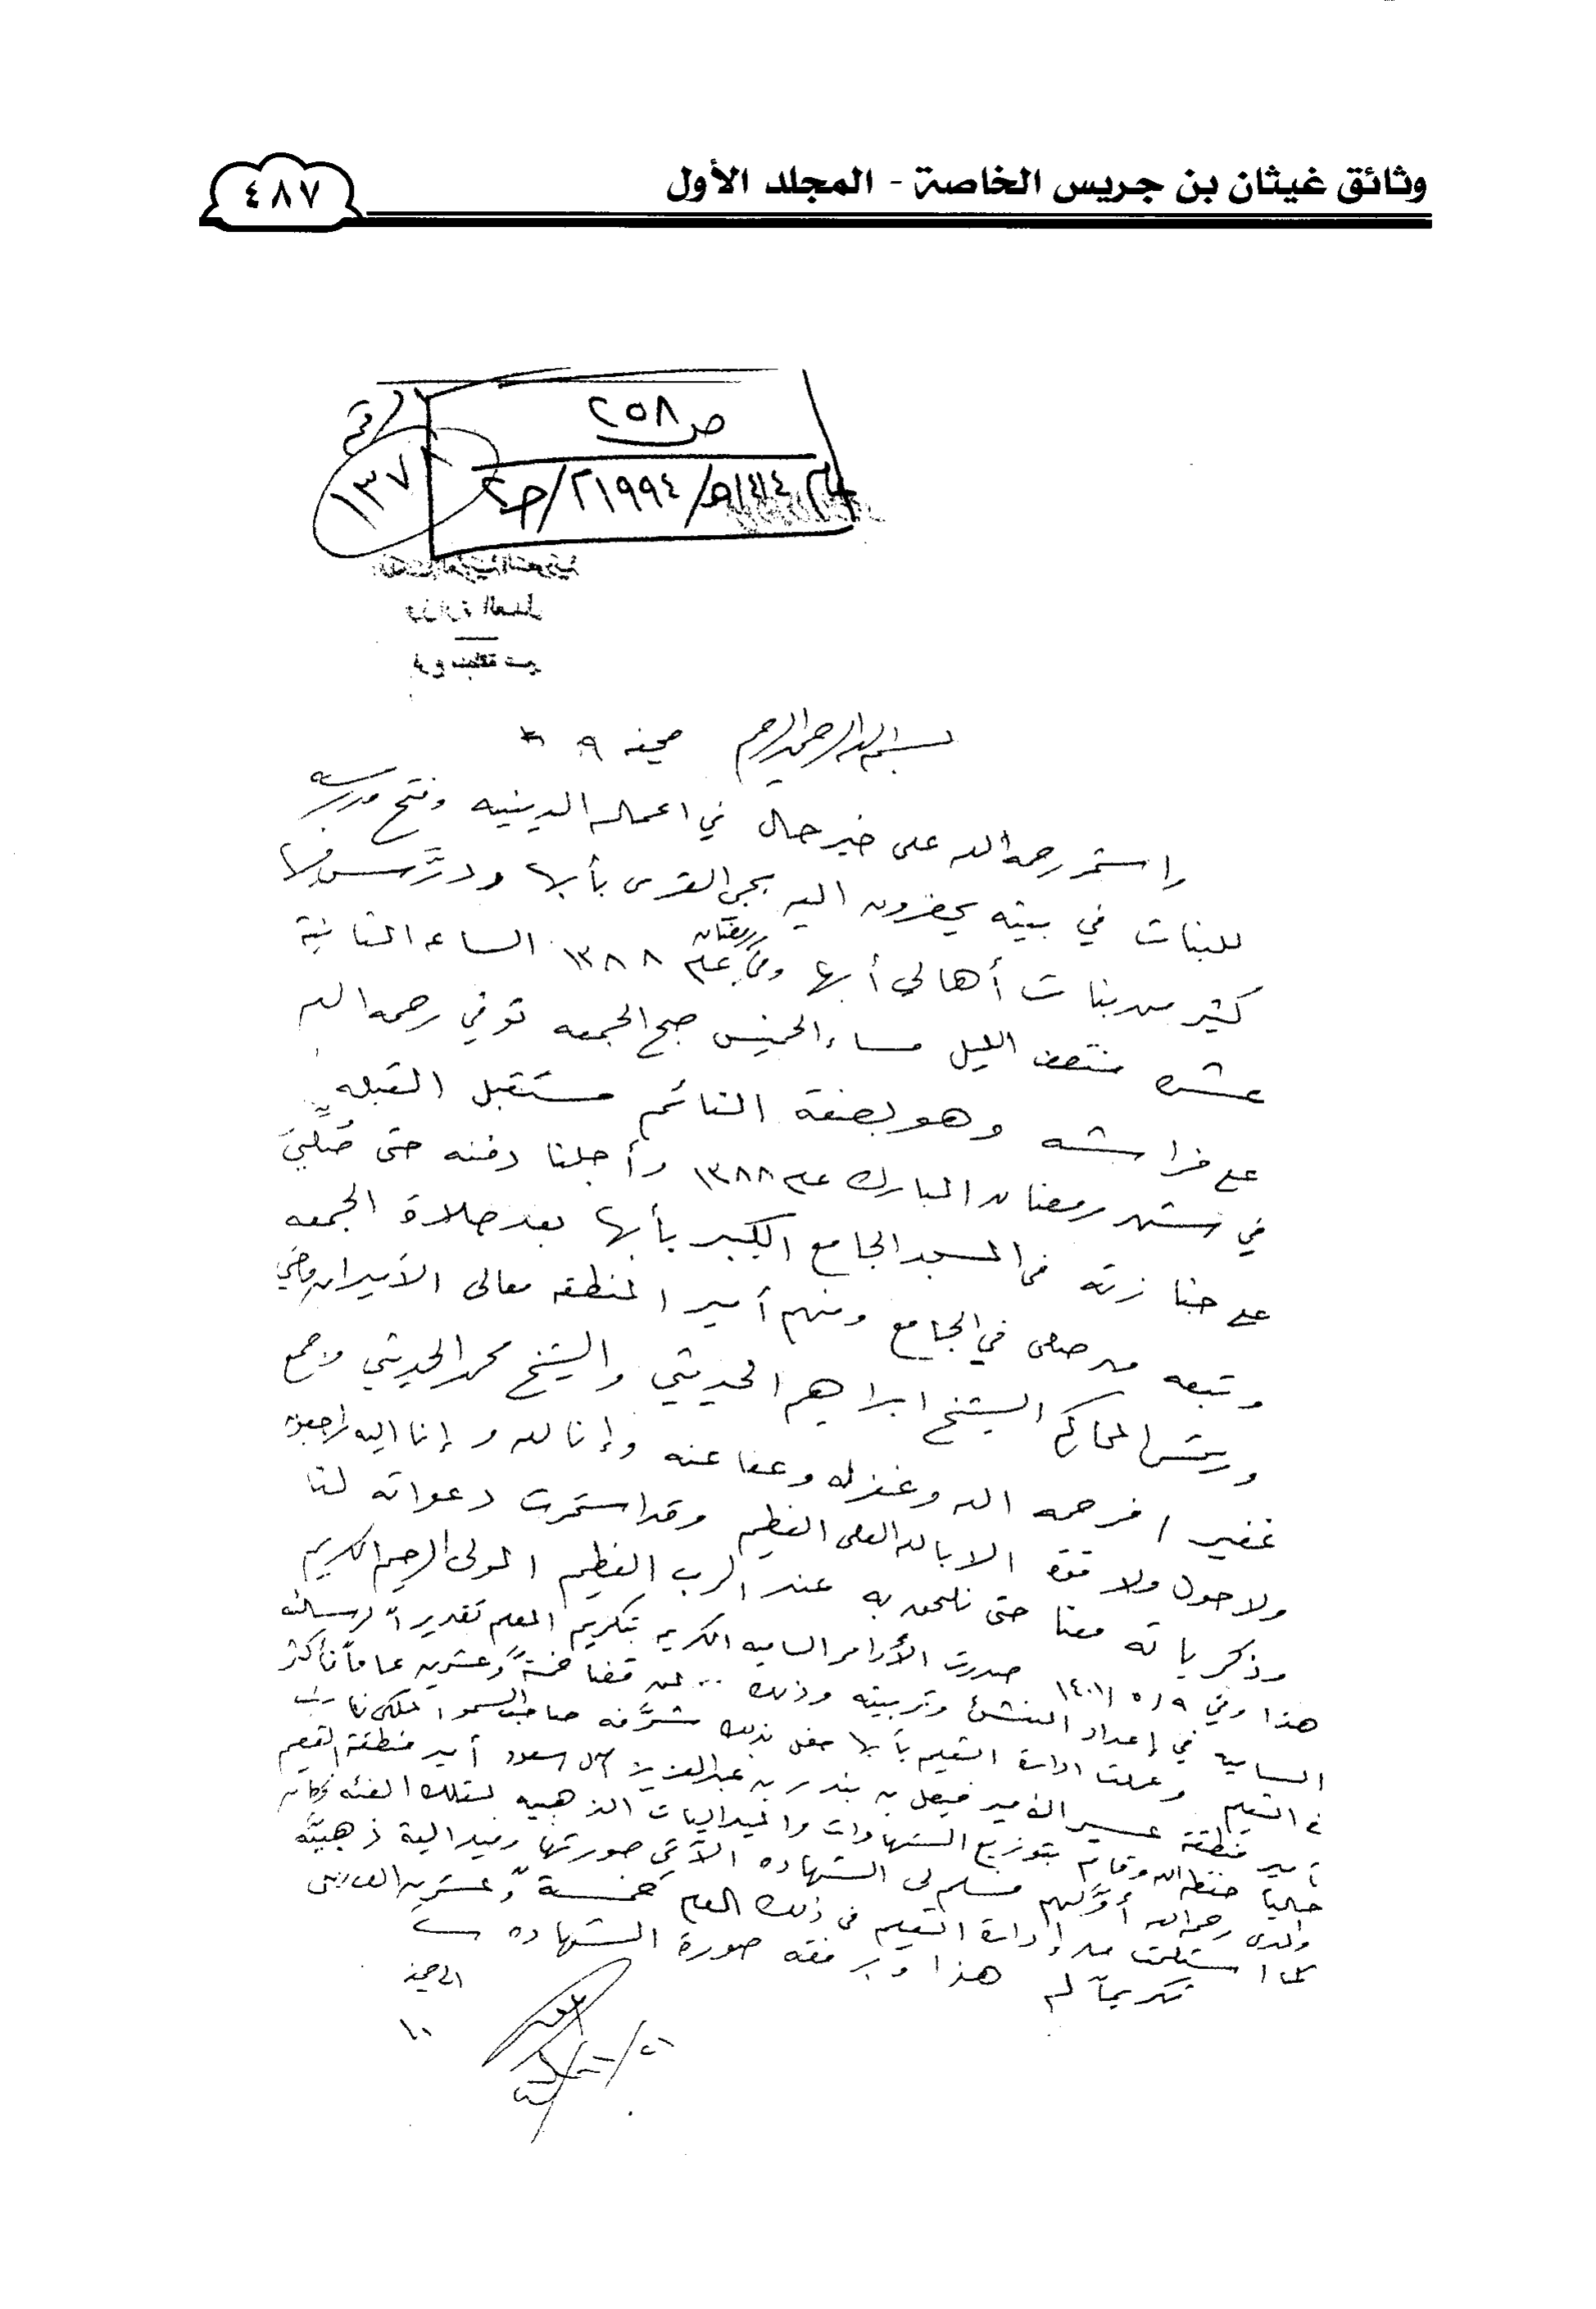 وثائق غيثان بن جريس الخاصة - المجلد الأول
٤٨٧
ص ٢٥٨
١٤١٤هـ/٢١٩٩٤/ص٢
الرقم
١٣٧
المملكة العربية السعودية
وزارة العدل
بسم الله الرحمن الرحيم صحيفه ٩
استمر رحمه الله على خير حال في اعماله الدينيه وفتح مدرسه
للبنات في بيته يحضرون اليه بحي القرى بأبها ودرَّس فيها
كثير من بنات أهالي أبها وفي رمضان عام ١٣٨٨ الساعه الثانية
عشره منتصف الليل مساء الخميس صبح الجمعه توفي رحمه الله
على فراشه وهو بصفة النائم مستقبل القبله
في شهر رمضان المبارك عام ١٣٨٨ وأجلنا دفنه حتى صُلِّيَ
على جنازته في المسجد الجامع الكبير بأبها بعد صلاة الجمعه
وتبعه من صلى في الجامع ومنهم أمير المنطقه معالى الأمير
ورئيس المحاكم الشيخ ابراهيم الحديثي والشيخ محمد الحديثي وجمع
غفير / فرحمه الله وغفر له وعفا عنه وإنا لله وإنا اليه راجعون
ولا حول ولا قوة الا بالله العلى العظيم وقد استمرت دعواته لنا
وذكرياته معنا حتى نلحق به عند الرب العظيم المولى الرحيم الكريم
هذا وفي ١٤٠١/٥/٩ صدرت الأوامر الساميه الكريمه بتكريم المعلم تقديراً لرسالته
الساميه في إعداد النشئ وتربيته وذلك .. لمن قضا خمسةً وعشرين عاماً فأكثر
في التعليم وعملت ادارة التعليم بأبها حفل بذلك شرَّفه صاحب السمو الملكي نائب
أمير منطقة عسير الأمير فيصل بن بندر بن عبدالعزيز آل سعود أمير منطقة القصيم
حالياً حفظه الله وقام بتوزيع الشهادات والميداليات الذهبيه لتلك الفئه فكان
والدى رحمه الله أوَّلهم فسلم لى الشهاده الآتي صورتها وميدالية ذهبيَّه
كما استلمت من إدارة التعليم في ذلك العام خمسةً وعشرين
تكريماً له هذا وبرفقه صورة الشهاده
الى صحيفة
١٠